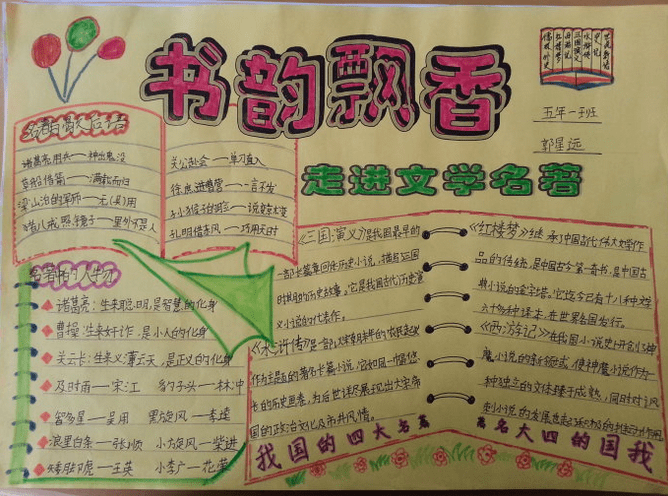 书韵飘香
走进文学名著
五年一班
郭星远
名著的歇后语
诸葛亮用兵——神出鬼没
草船借箭——满载而归
梁山泊的军师——无(吴)用
猪八戒照镜子——里外不是人
关公赴会——单刀直入
徐庶进曹营——一言不发
孙猴子的脸——说变就变
孔明借东风——巧用天时
名著中的人物
诸葛亮:生来聪明,是智慧的化身
曹操:生来奸诈,是小人的化身
关云长:生来义薄云天,是正义的化身
及时雨——宋江 豹子头——林冲
智多星——吴用 黑旋风——李逵
浪里白条——张顺 小旋风——柴进
矮脚虎——王英 小李广——花荣
《三国演义》是我国最早的
一部长篇章回体历史小说,描写三国
时期的历史故事。它是我国古代历史演
义小说的代表作。
《水浒传》是一部以
作为主题的著名长篇小说,它如同一幅悠
长的历史画卷,为后世详尽展现出大宋帝
国的政治文化及市井风情。
我国的四大名著
《红楼梦》继承了中国古代伟大文学作
品的传统,是中国古今第一奇书,是中国古
典小说的金字塔。它迄今已有十八种文字
六十多种译本,在世界各国发行。
《西游记》在我国小说史上开创了神
魔小说的新领域,使神魔小说作为一
种独立的文体臻于成熟,同时对讽
刺小说的发展也起了积极的
著名大四的国我